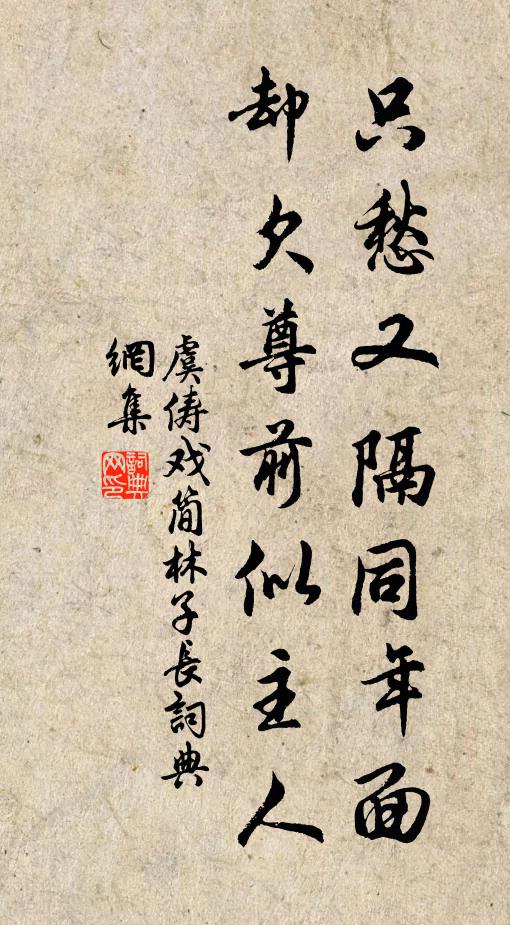 只愁又隔同年面
却欠尊前似主人
虞俦戏简林子長詞典
網集
詞典
网印